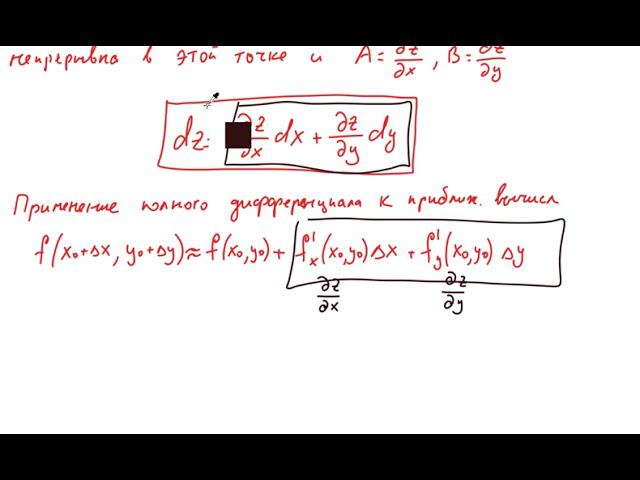 непрерывна в этой точке и A = ∂z/∂x , B = ∂z/∂y
dz = ∂z/∂x dx + ∂z/∂y dy
Применение полного дифференциала к приближ. вычисл
f(x₀+Δx, y₀+Δy) ≈ f(x₀,y₀) + f'ₓ(x₀,y₀) Δx + f'ᵧ(x₀,y₀) Δy
∂z/∂x ∂z/∂y